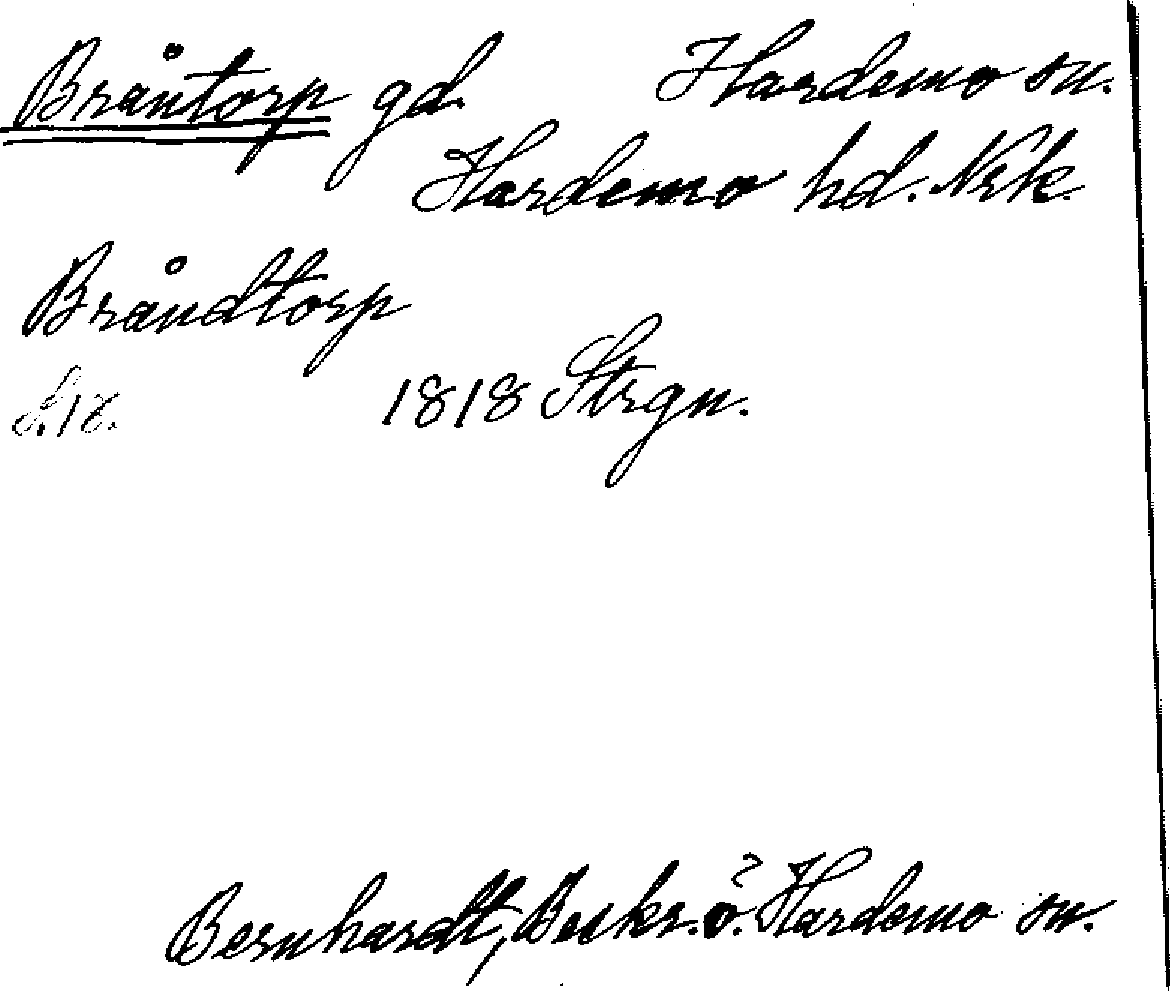 Bråntorp gd. Hardemo sn.
Hardemo hd. Nrk.
Bråndtorp
S. 18. 1818 Strgn.
Bernhardt, Beskr. ö. Hardemo sn.